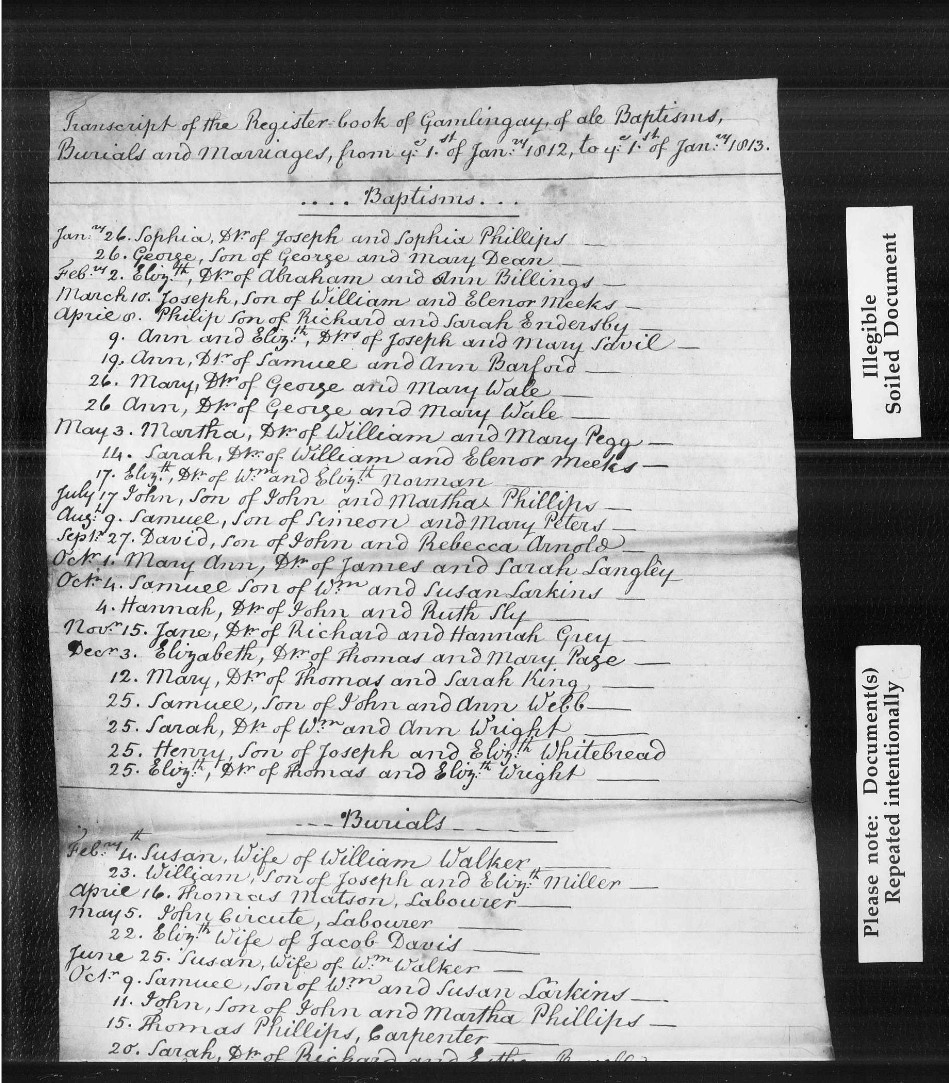 Transcript of the Register-book of Gamlingay, of ale Baptisms,
Burials and Marriages, from ye. 1.st of Jan.ry 1812, to ye. 1.st of Jan.ry 1813.
.... Baptisms...
Jan.ry 26. Sophia, Dr. of Joseph and Sophia Phillips —
26. George, Son of George and Mary Dean —
Feb.ry 2. Eliz.th, Dr. of Abraham and Ann Billings —
March 10. Joseph, Son of William and Elenor Meeks —
April 8. Philip Son of Richard and Sarah Endersby —
9. Ann and Eliz.th, Drs. of Joseph and Mary Savil —
19. Ann, Dr. of Samuel and Ann Barford —
26. Mary, Dr. of George and Mary Wale —
26 Ann, Dr. of George and Mary Wale —
May 3. Martha, Dr. of William and Mary Pegg —
14. Sarah, Dr. of William and Elenor Meeks —
17. Eliz.th, Dr. of Wm. and Eliz.th Norman —
July 17 John, Son of John and Martha Phillips —
Aug.t 9. Samuel, Son of Simeon and Mary Peters —
Septr. 27. David, Son of John and Rebecca Arnold —
Octr. 1. Mary Ann, Dr. of James and Sarah Langley
Octr. 4. Samuel Son of Wm. and Susan Larkins —
4. Hannah, Dr. of John and Ruth Sly —
Novr. 15. Jane, Dr. of Richard and Hannah Grey —
Decr. 3. Elizabeth, Dr. of Thomas and Mary Page —
12. Mary, Dr. of Thomas and Sarah King —
25. Samuel, Son of John and Ann Webb —
25. Sarah, Dr. of Wm. and Ann Wright —
25. Henry, Son of Joseph and Eliz.th Whitebread
25. Eliz.th, Dr. of Thomas and Eliz.th Wright —
--- Burials ---
Feb.ry 4.th Susan, Wife of William Walker —
23. William, Son of Joseph and Eliz.th Miller —
April 16. Thomas Matson, Labourer —
May 5. John Circute, Labourer —
22. Eliz.th Wife of Jacob Davis —
June 25. Susan, Wife of Wm. Walker —
Octr. 9. Samuel, Son of Wm. and Susan Larkins —
11. John, Son of John and Martha Phillips —
15. Thomas Phillips, Carpenter —
20. Sarah, Dr. of Richard and
Illegible
Soiled Document
Please note: Document(s)
Repeated intentionally